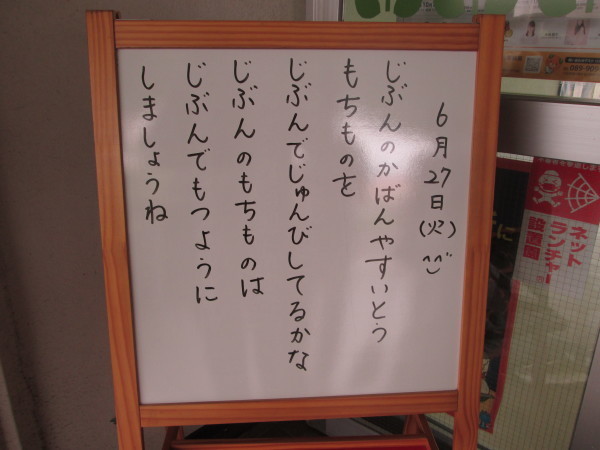 6月27日(火)^^
じぶんのかばんやすいとう
もちものを
じぶんでじゅんびしてるかな
じぶんのもちものは
じぶんでもつように
しましょうね
ネット
ランチャー
設置園